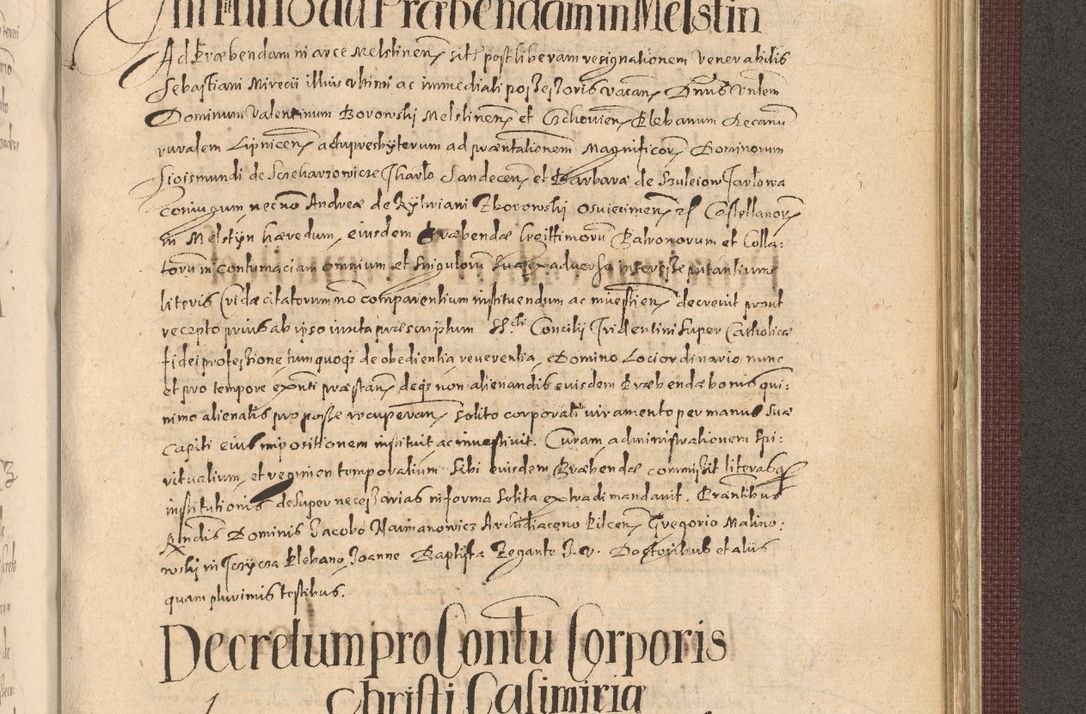 Institutio ad Præbendam in Melstin
Ad Præbendam in arce Melstinen sitt post liberam resignationem Venerabilis
Sebastiani Mirecii illius ultimi ac immediati possessoris vacan Dnus Untem
Dominum Valentinum Borowski Melstinen et Czchovien Plebanum Decanū
ruralem Lipnicen actu presbyterum ad præntationem Magnificor Dominorum
Sigismundi de Szczekarzowicze Tharlo Sandecen et Barbaræ de Szuleiow Jarlowa
coniugum necnō Andreæ de Rythviani Zborowski Osviecimen Castellanor
in Melstyn hæredum, eiusdem Præbendæ legittimorū Patronorum et Colla:
torū in contumaciam omnium et singulorū sua ex adverso interesse putantium
literis Cridæ citatorum nō comparentium instituendum ac investien decrevit prout
recepto prius ab ipso iuxta præscriptum SSti Concilii Tridentini super Catholicæ
fidei professione tum quoqz de obedientia reverentia, Domino Loci ordinario nunc
et pro tempore exnti præstan deqz non alienandis eiusdem Præbendæ bonis qui:
nimo alienatis pro posse recuperan solito corporali iuramento per manus suæ
capiti eius impositionem instituit ac investivit. Curam administrationem spi:
ritualium, et regimen temporalium sibi eiusdem Præbendæ commisit literasq
institutionis desuper necessarias in forma solita extradi mandavit. Præntibus
Rndis Dominis Jacobo Naimanowicz Archidiacono Pilcen, Gregorio Malino:
wski in Plebano, Joanne Baptista Zegante J. v. Doctoribus et aliis
quam plurimis testibus.
Decretum pro Contu Corporis
Christi Casimiria